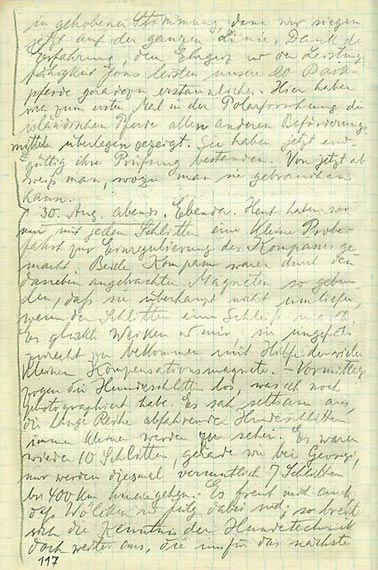 in gehobener Stimmung, denn wir siegen
jetzt auf der ganzen Linie. Dank der
Erfahrung, dem Ehrgeiz u. der Leistungs
fähigkeit Jons leisten unsere 20 Pack-
pferde geradezu erstaunliches. Hier haben
sich zum ersten Mal in der Polarforschung die
isländischen Pferde allen anderen Beförderungs
mitteln überlegen gezeigt. Sie haben jetzt end-
gültig ihre Prüfung bestanden. Von jetzt ab
weiß man, wozu man sie gebrauchen
kann.
30. Aug. abends. Ebenda. Heut haben wir
nur mit jedem Schlitten eine kleine Probe
fahrt zur Einregulierung des Kompasses ge
macht. Beide Kompasse waren durch den
daneben angebrachten Magneten so gebun
den, daß sie überhaupt nicht umliefen,
wenn der Schlitten eine Schleife machte.
Es glückte u. mir, sie ungefähr
zurecht zu bekommen mit Hilfe der vielen
kleinen Kompensationsmagnete. – Vormittag
zogen die Hundeschlitten los, was ich noch
photographiert habe. Es sah seltsam aus,
die lange Reihe abfahrender Hundeschlitten
immer kleiner werden zu sehen. Es waren
wieder 10 Schlitten, gerade wie bei Georgi,
nur werden diesmal vermutlich 7 Schlitten
bis 400 km hineingehen. Es freut mich auch,
daß Wölcken u. dabei sind; so breitet
sich die Kenntnis der Hundetechnik
doch weiter aus, die uns für das nächste
117